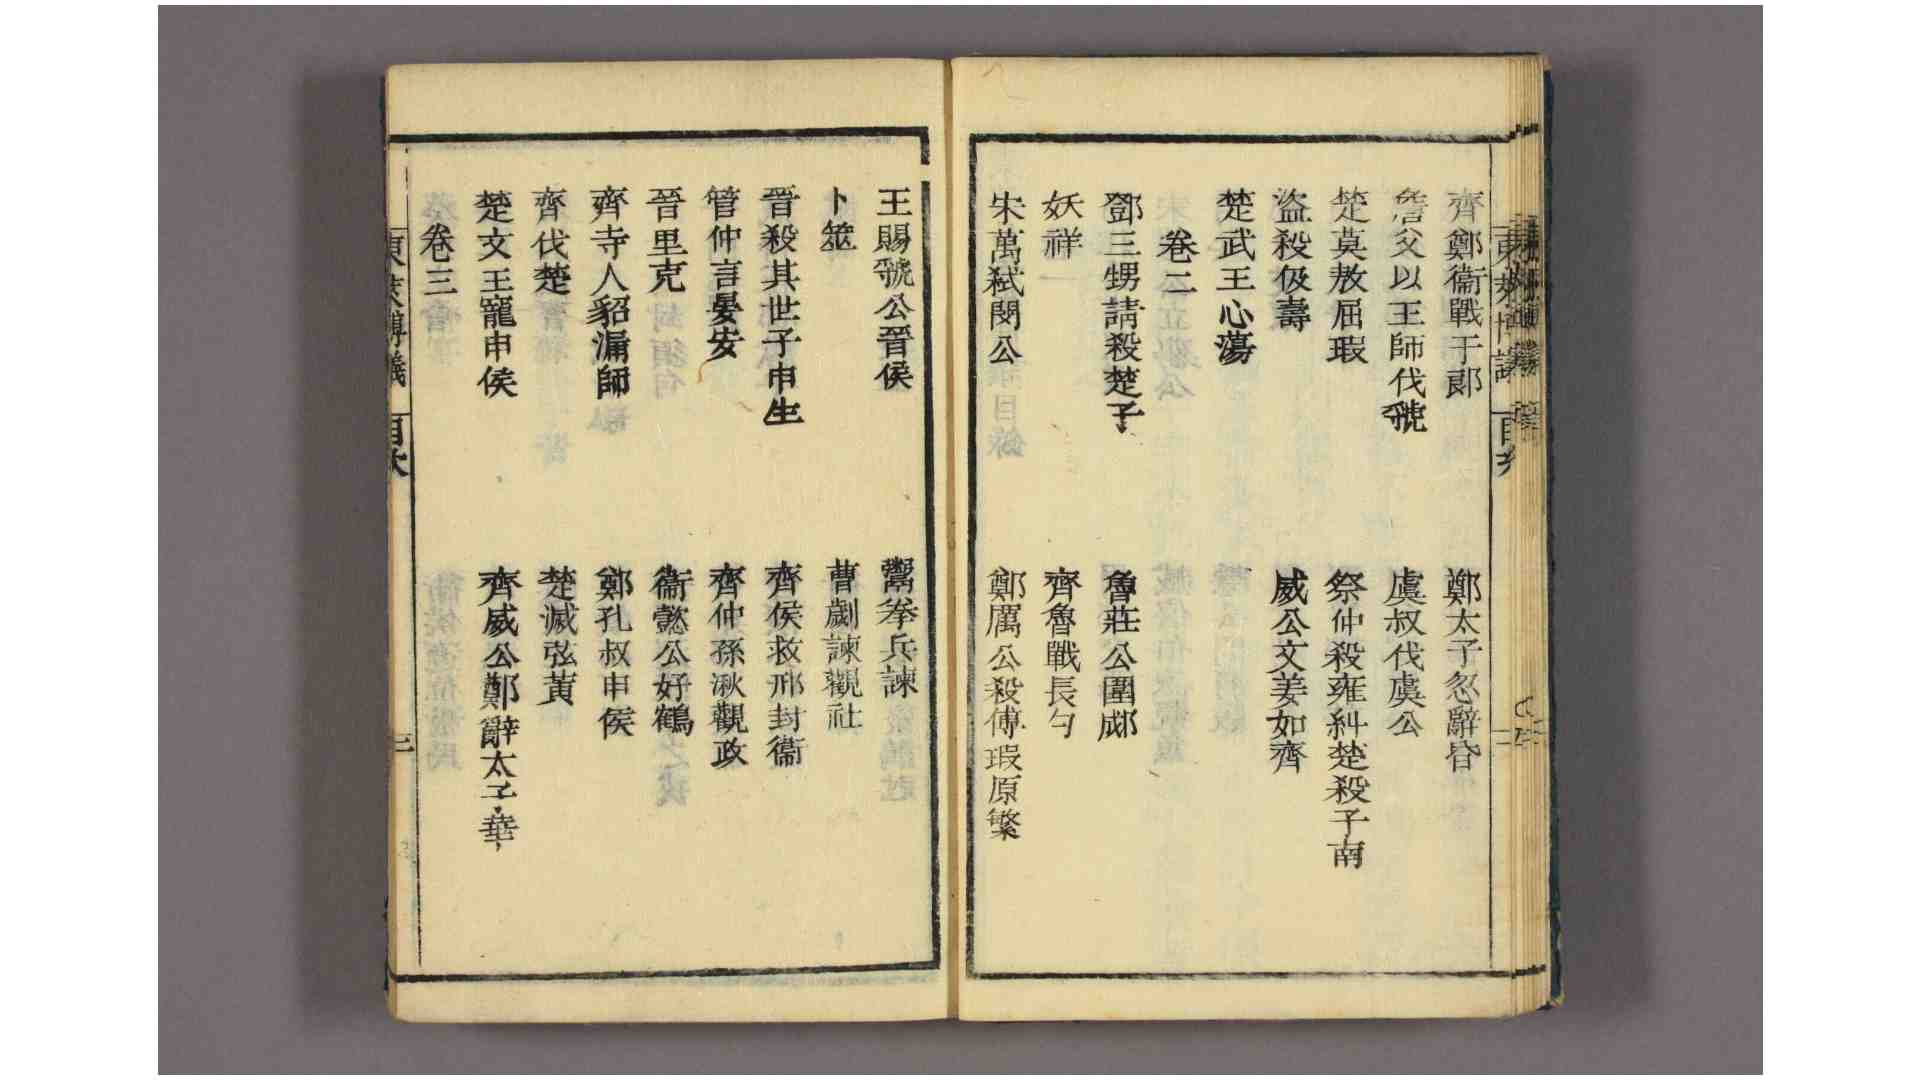 齊鄭衞戰于郞
鄭太子忽辭昏
詹父以王師伐虢
虞叔伐虞公
楚莫敖屈瑕
祭仲殺雍糾楚殺子南
盜殺伋壽
威公文姜如齊
楚武王心蕩
卷二
鄧三甥請殺楚子
魯莊公圍郕
妖祥一
齊魯戰長勺
宋萬弑閔公
鄭厲公殺傅瑕原繁
王賜虢公晉侯
鬻拳兵諫
卜筮
曹劌諫觀社
晉殺其世子申生
齊侯救邢封衞
管仲言晏安
齊仲孫湫觀政
晉里克
衞懿公好鶴
齊寺人貂漏師
鄭孔叔申侯
齊伐楚
楚滅弦黃
楚文王寵申侯
齊威公鄭辭太子華
卷三
東萊博議 目次 二